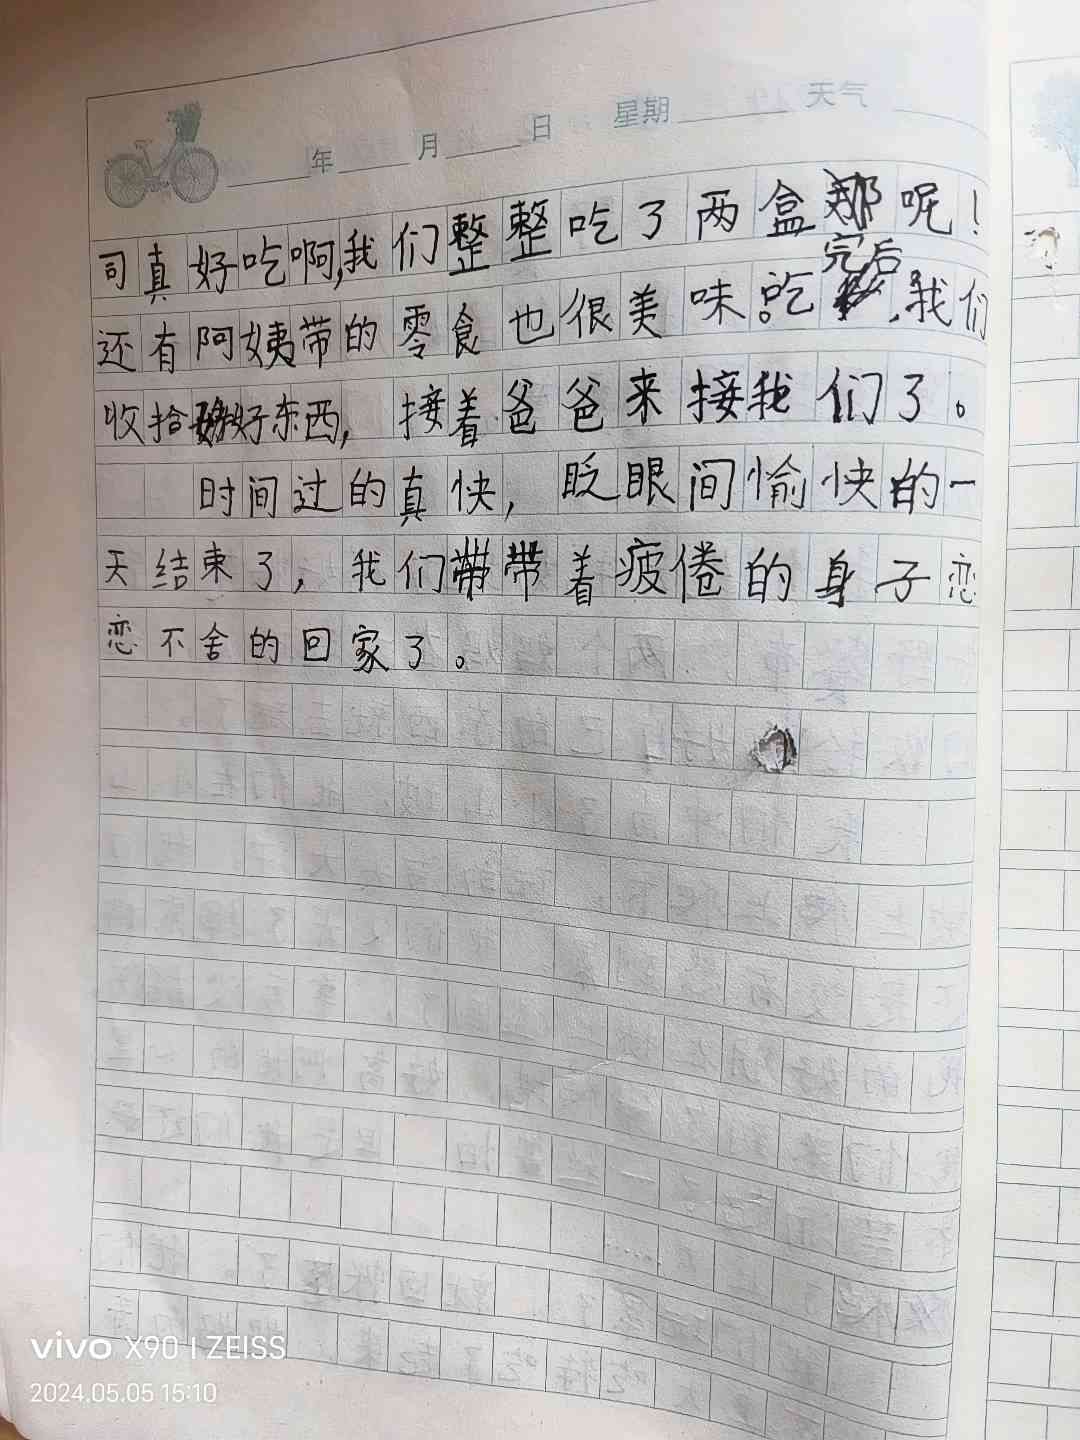 年 月 日 星期 天气
司真好吃啊,我们整整吃了两盒那呢!
还有阿姨带的零食也很美味。吃完后,我们
收拾好东西,接着爸爸来接我们了。
时间过的真快,眨眼间愉快的一
天结束了,我们带着疲倦的身子恋
恋不舍的回家了。
vivo X90 | ZEISS
2024.05.05 15:10